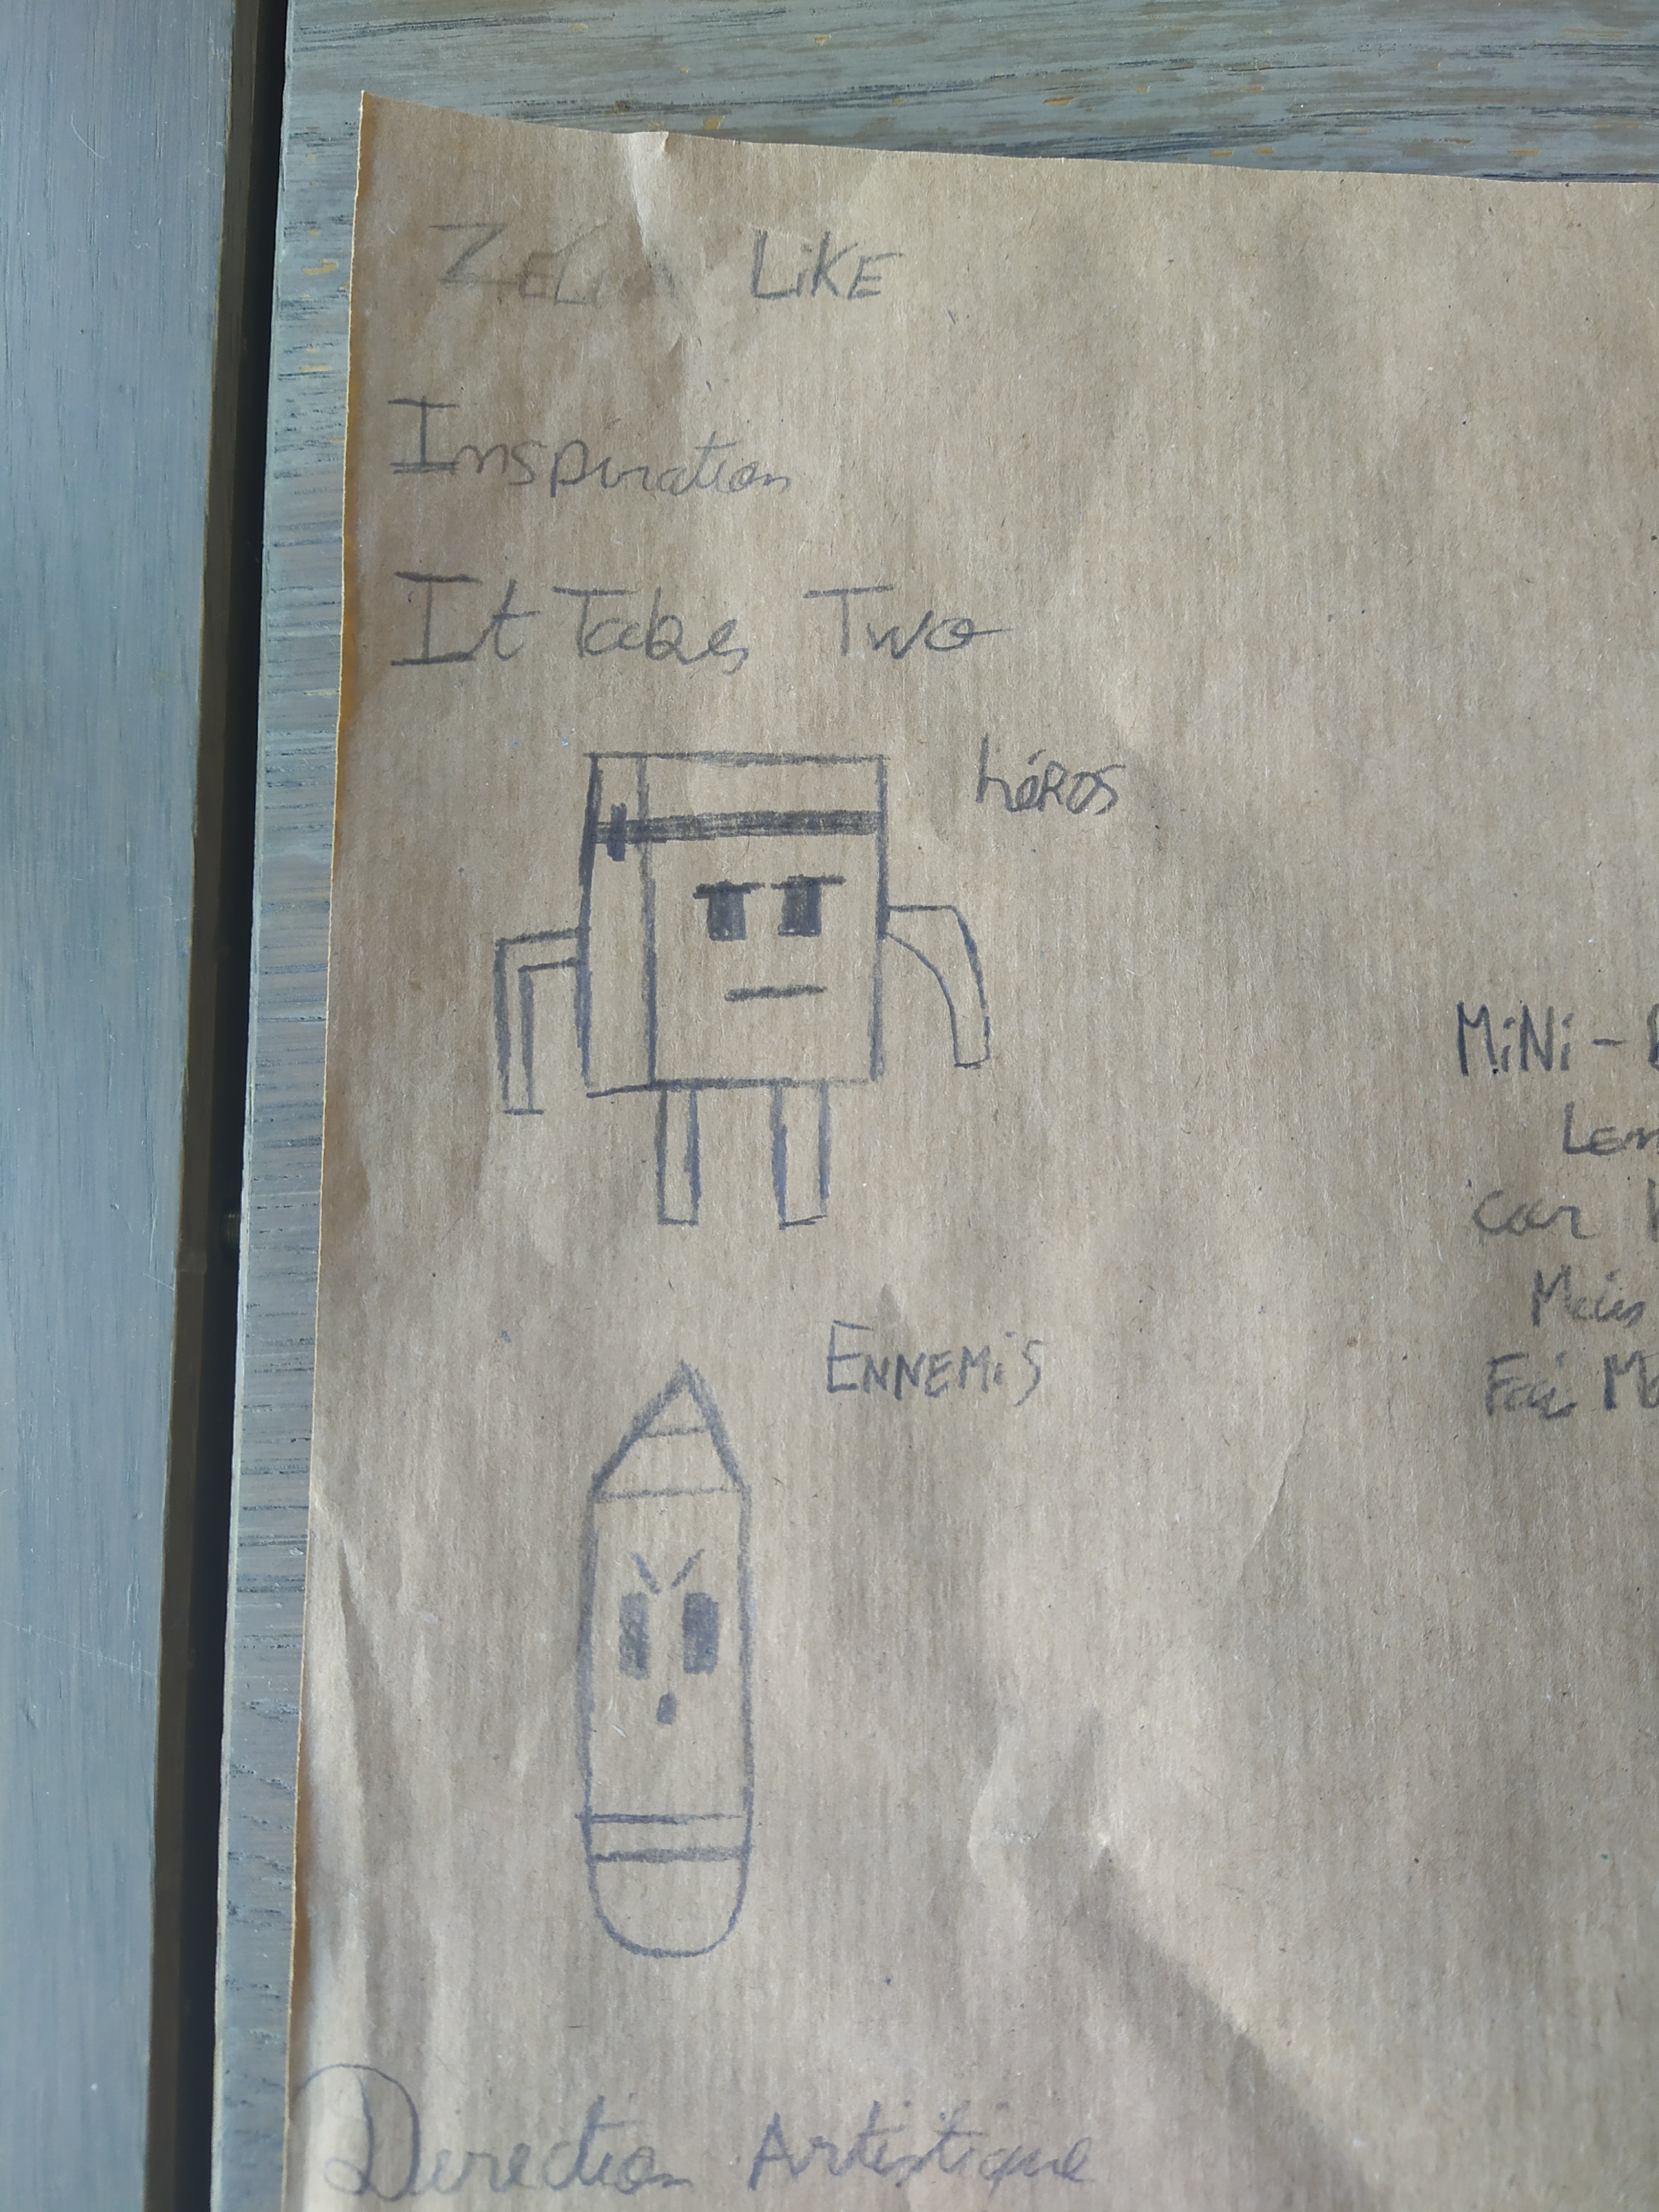 ZELDA LIKE
Inspiration
It Takes Two
héros
MiNi -
Len
car
Mais
Fai Mo
ENNEMiS
Direction Artistique